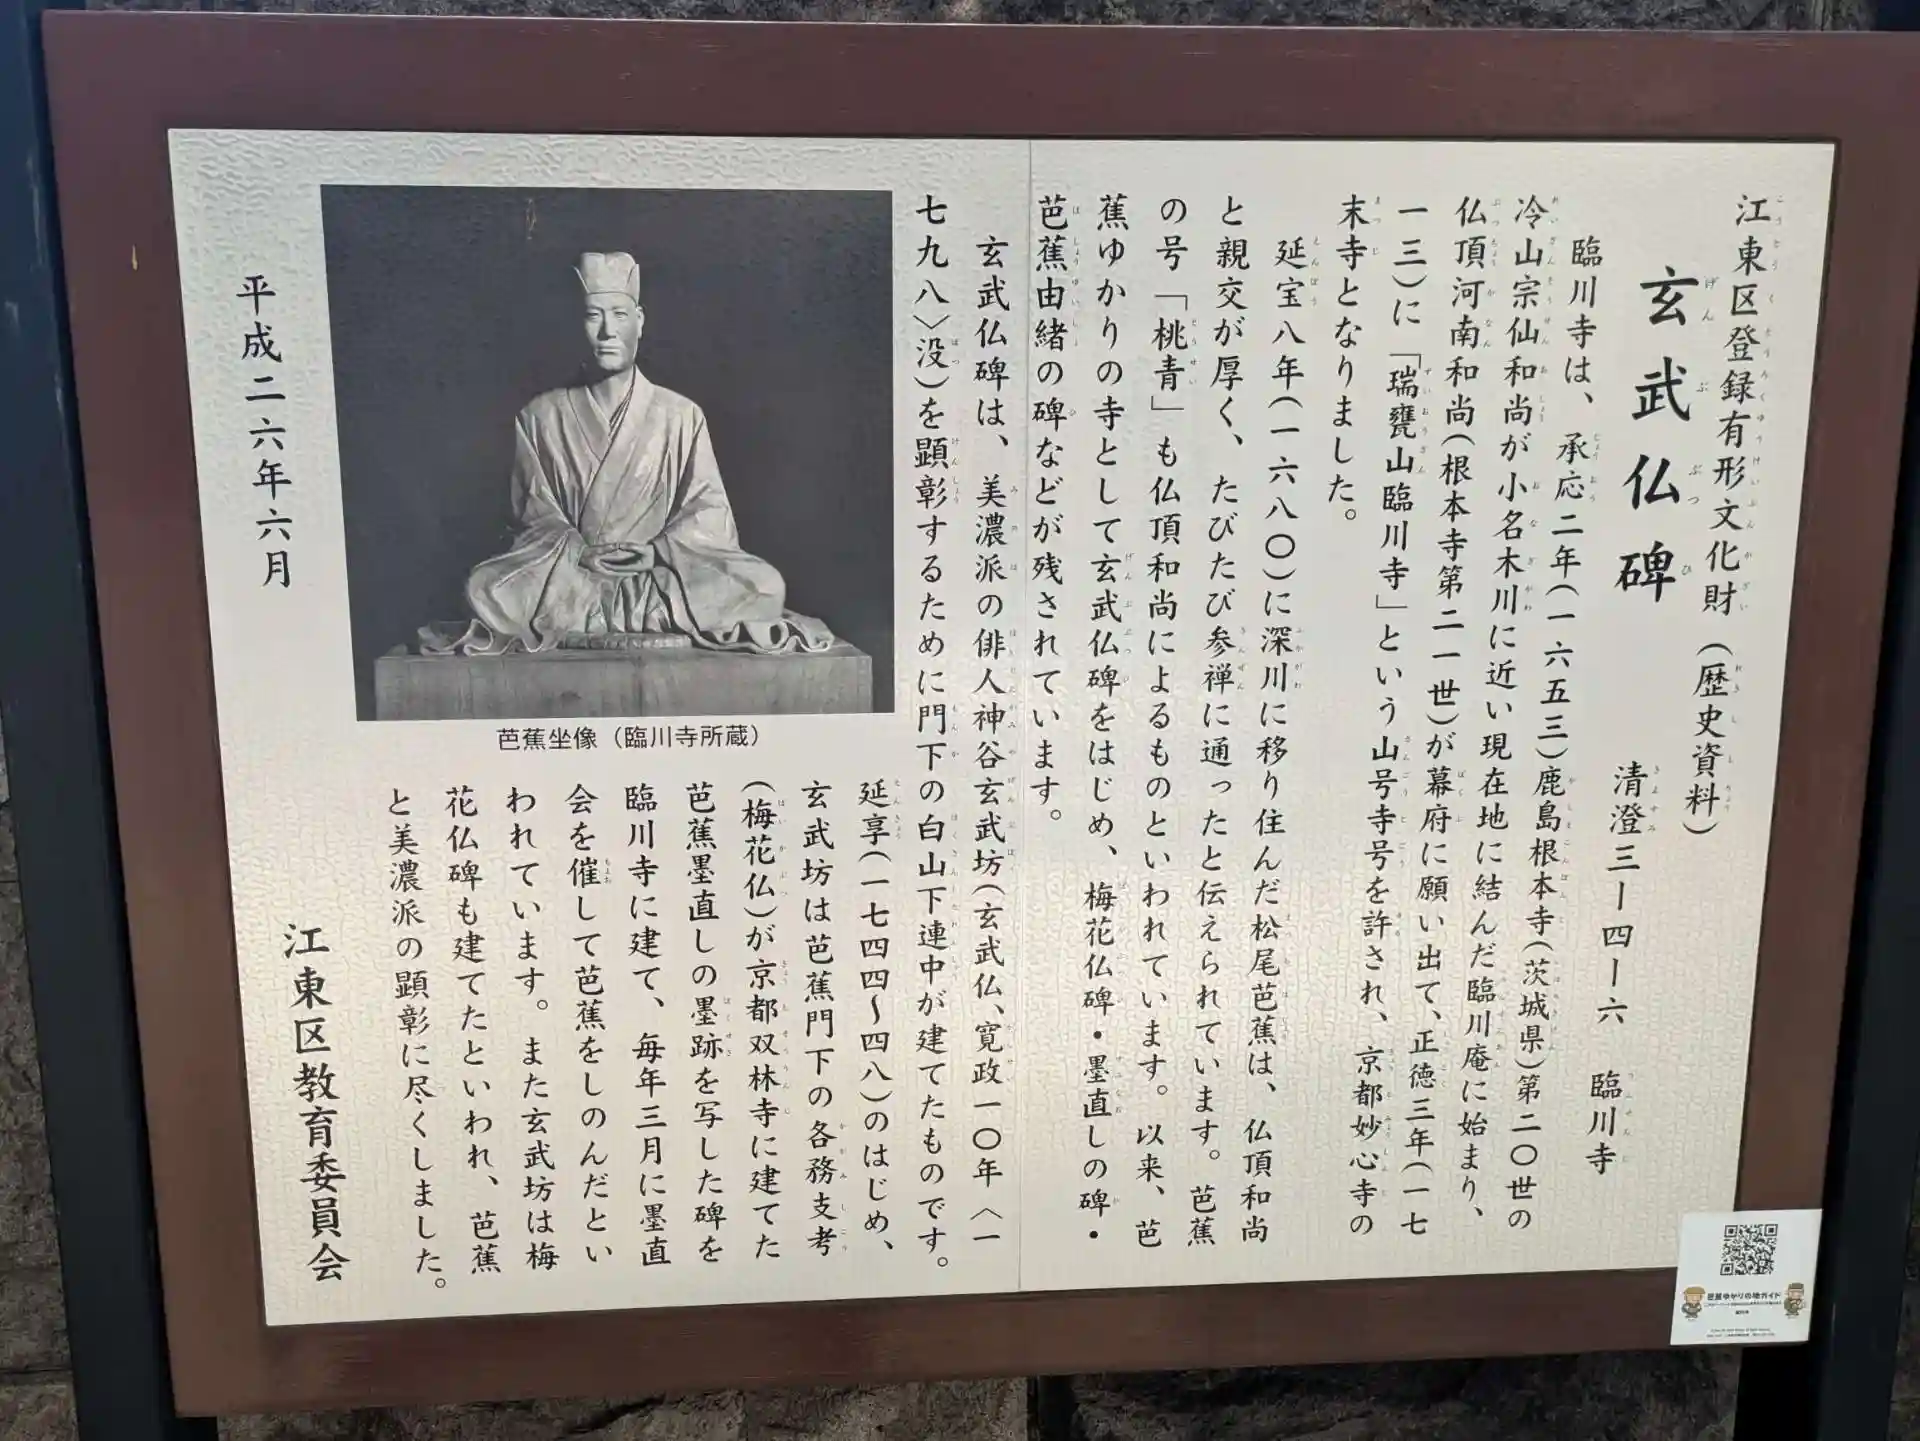 江東区登録有形文化財（歴史資料）
玄武仏碑
清澄三ー四ー六　臨川寺
臨川寺は、承応二年(一六五三)鹿島根本寺(茨城県)第二〇世の
冷山宗仙和尚が小名木川に近い現在地に結んだ臨川庵に始まり、
仏頂河南和尚(根本寺第二一世)が幕府に願い出て、正徳三年(一七
一三)に「瑞甕山臨川寺」という山号寺号を許され、京都妙心寺の
末寺となりました。
延宝八年(一六八〇)に深川に移り住んだ松尾芭蕉は、仏頂和尚
と親交が厚く、たびたび参禅に通ったと伝えられています。芭蕉
の号「桃青」も仏頂和尚によるものといわれています。以来、芭
蕉ゆかりの寺として玄武仏碑をはじめ、梅花仏碑・墨直しの碑・
芭蕉由緒の碑などが残されています。
玄武仏碑は、美濃派の俳人神谷玄武坊(玄武仏、寛政一〇年〈一
七九八〉没)を顕彰するために門下の白山下連中が建てたものです。
延享(一七四四～四八)のはじめ、
玄武坊は芭蕉門下の各務支考
(梅花仏)が京都双林寺に建てた
芭蕉墨直しの墨跡を写した碑を
臨川寺に建て、毎年三月に墨直
会を催して芭蕉をしのんだとい
われています。また玄武坊は梅
花仏碑も建てたといわれ、芭蕉
と美濃派の顕彰に尽くしました。
芭蕉坐像（臨川寺所蔵）
平成二六年六月
江東区教育委員会
芭蕉ゆかりの地ガイド